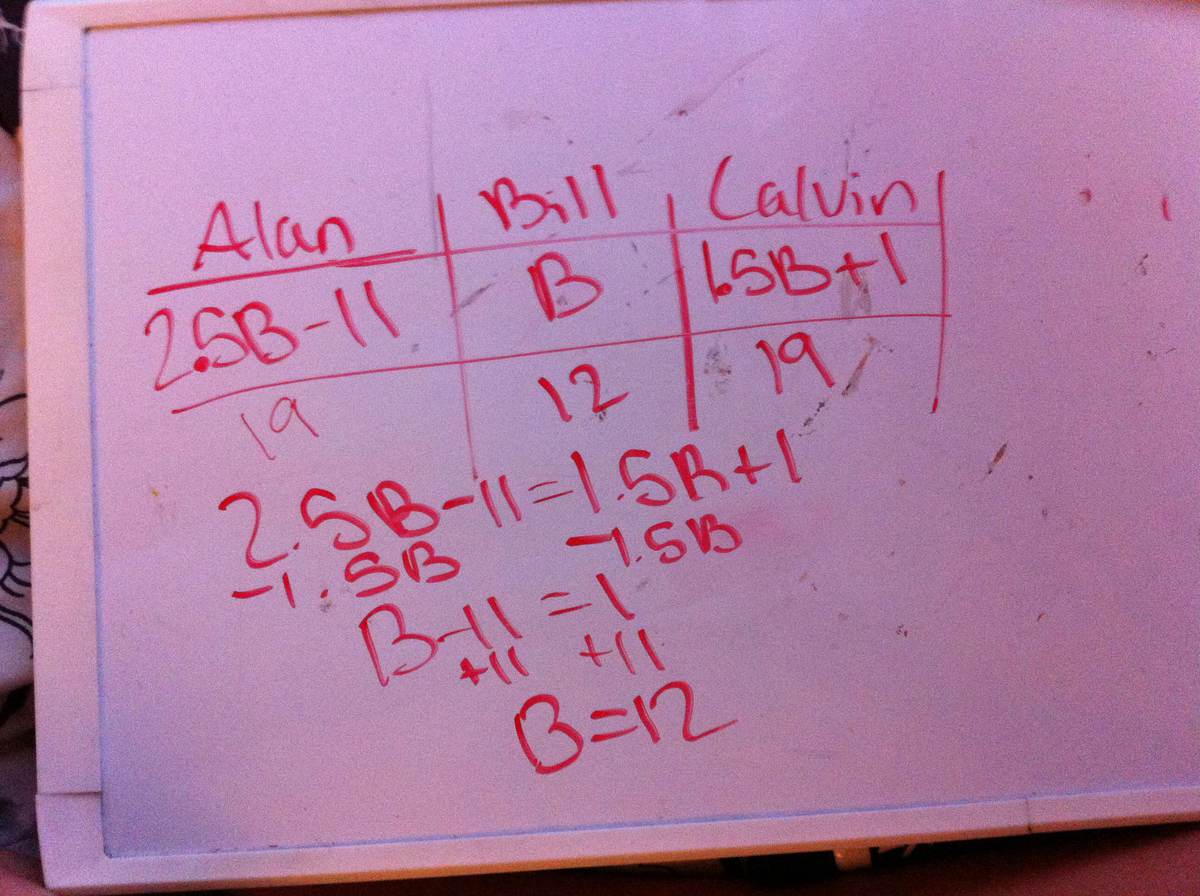 Alan Bill Calvin
2.5B-11 B 1.5B+1
19 12 19
2.5B-11=1.5B+1
-1.5B -1.5B
B-11=1
+11 +11
B=12